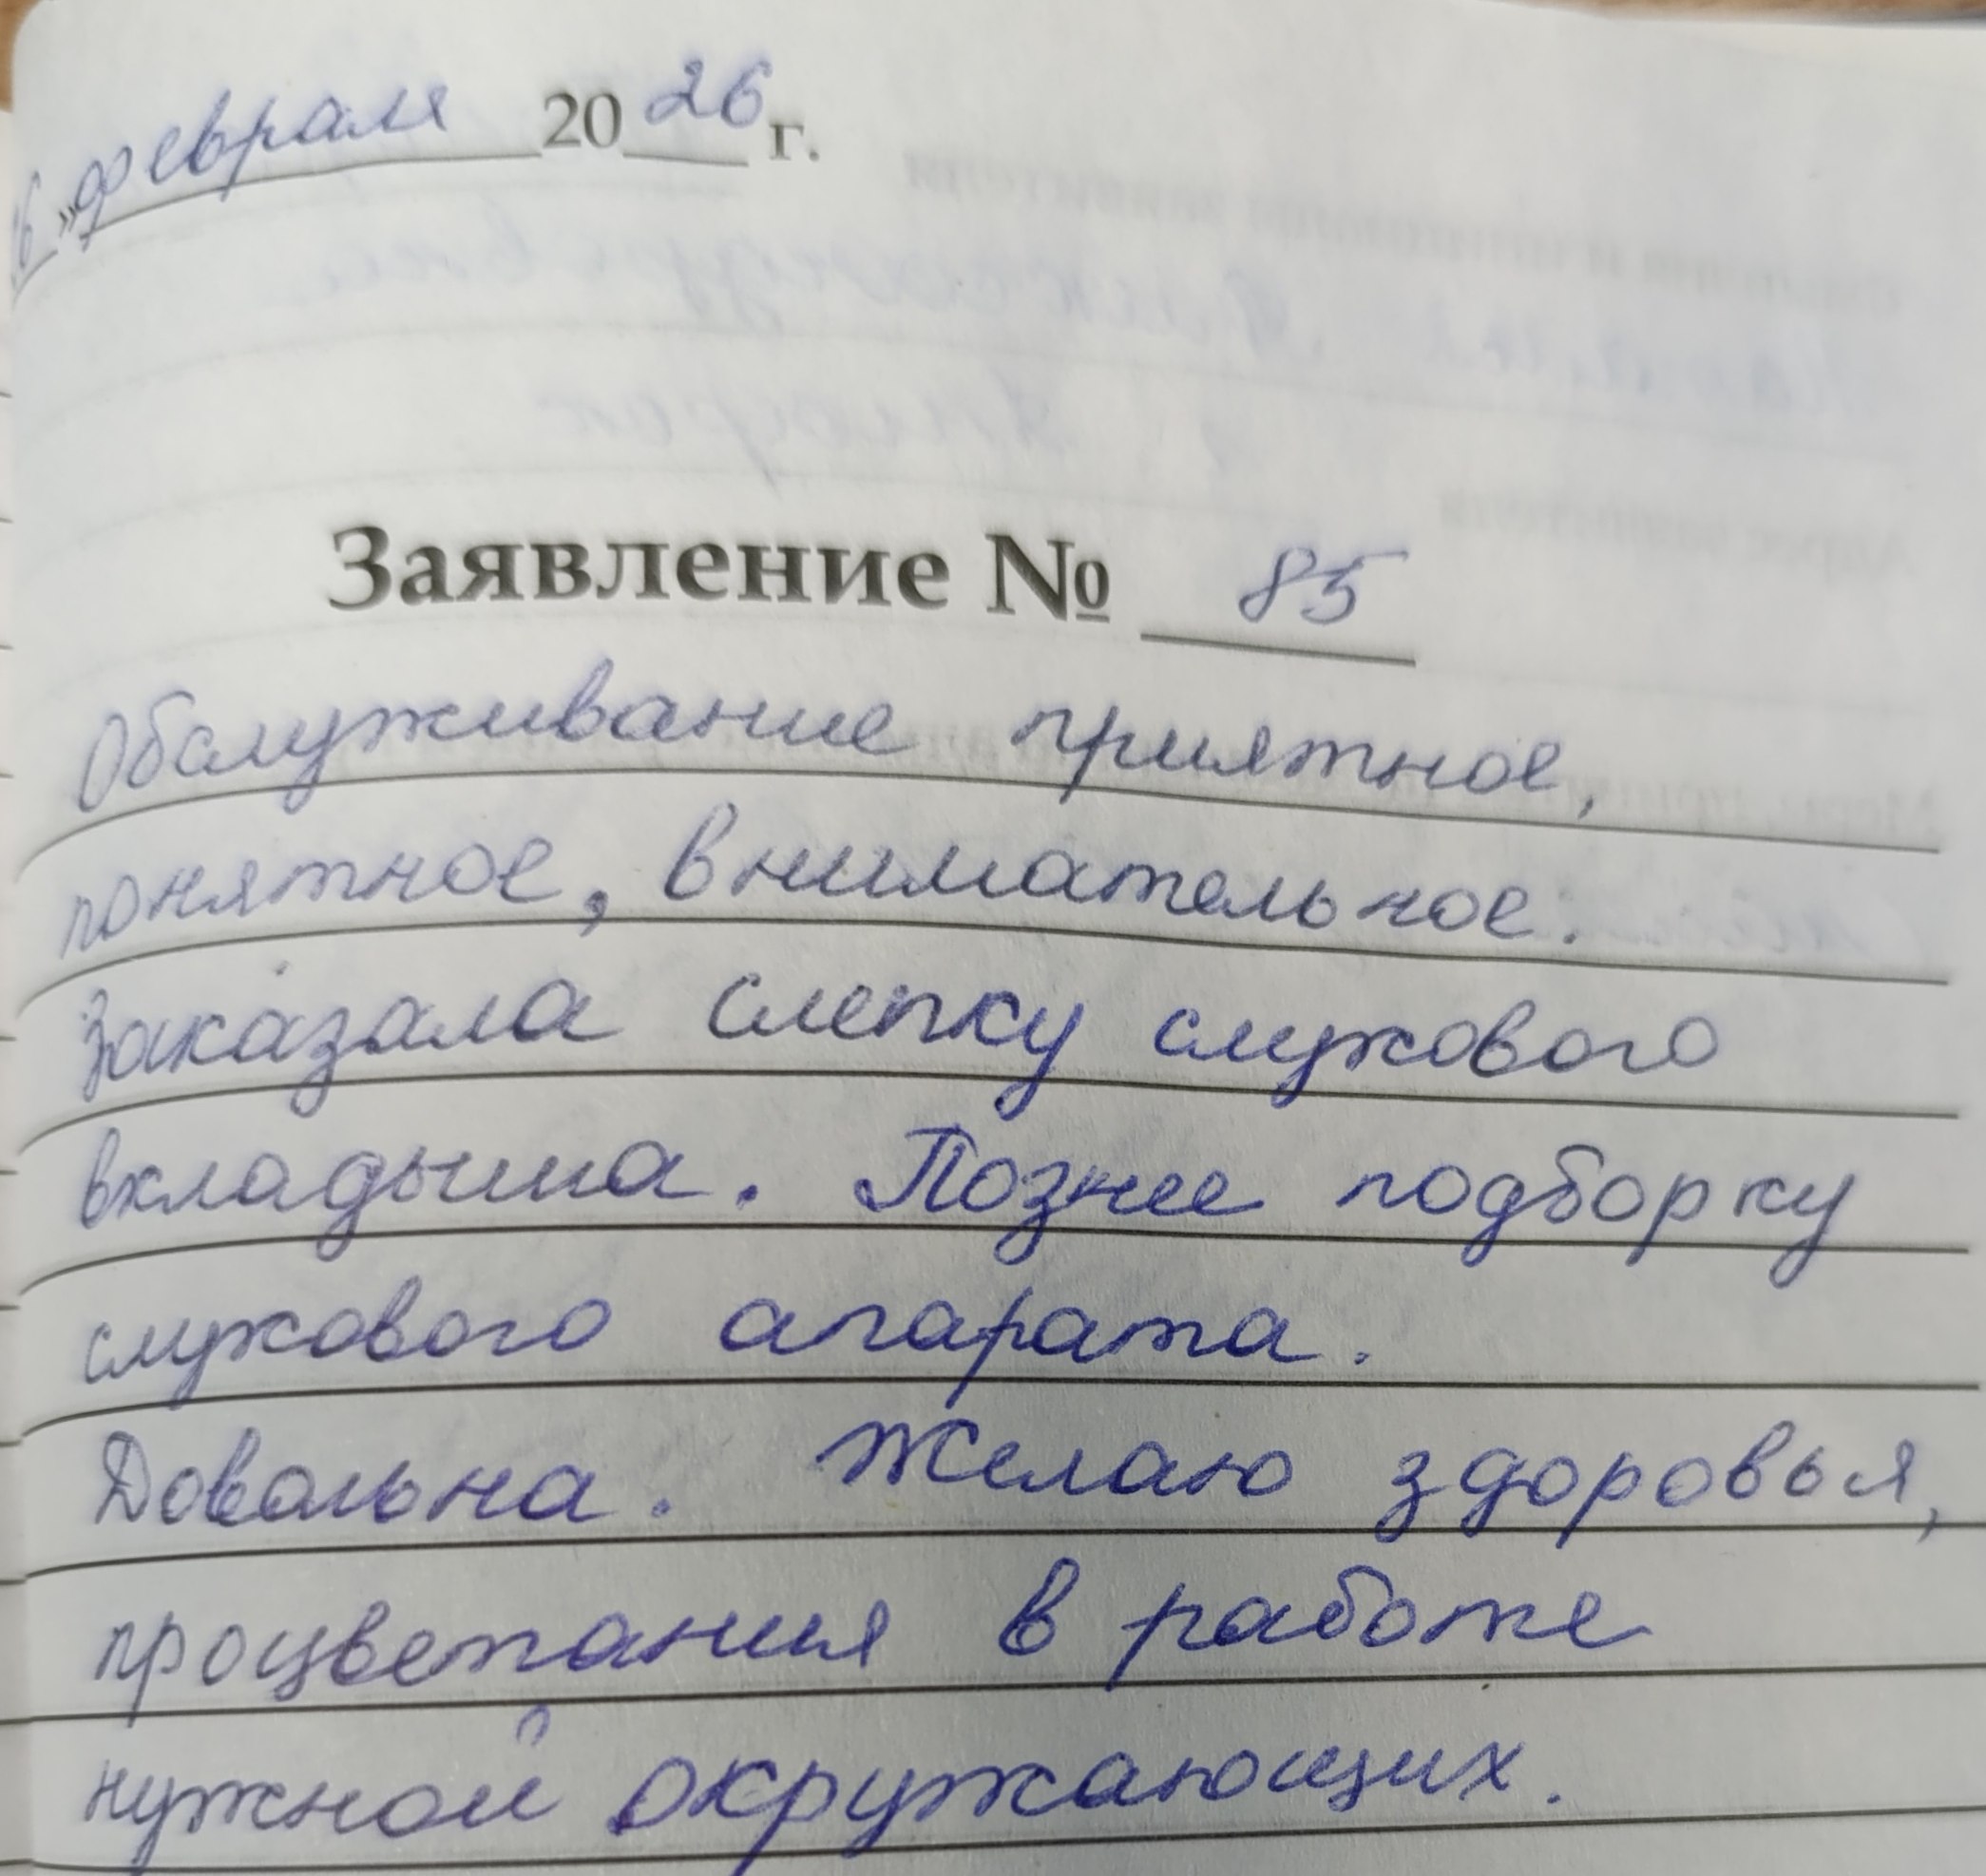 6 » февраля 2026 г.
Заявление № 85
Обслуживание приятное,
понятное, внимательное.
Заказала слепку слухового
вкладыша. Позднее подборку
слухового апарата.
Довольна. Желаю здоровья,
процветания в работе
нужной окружающих.